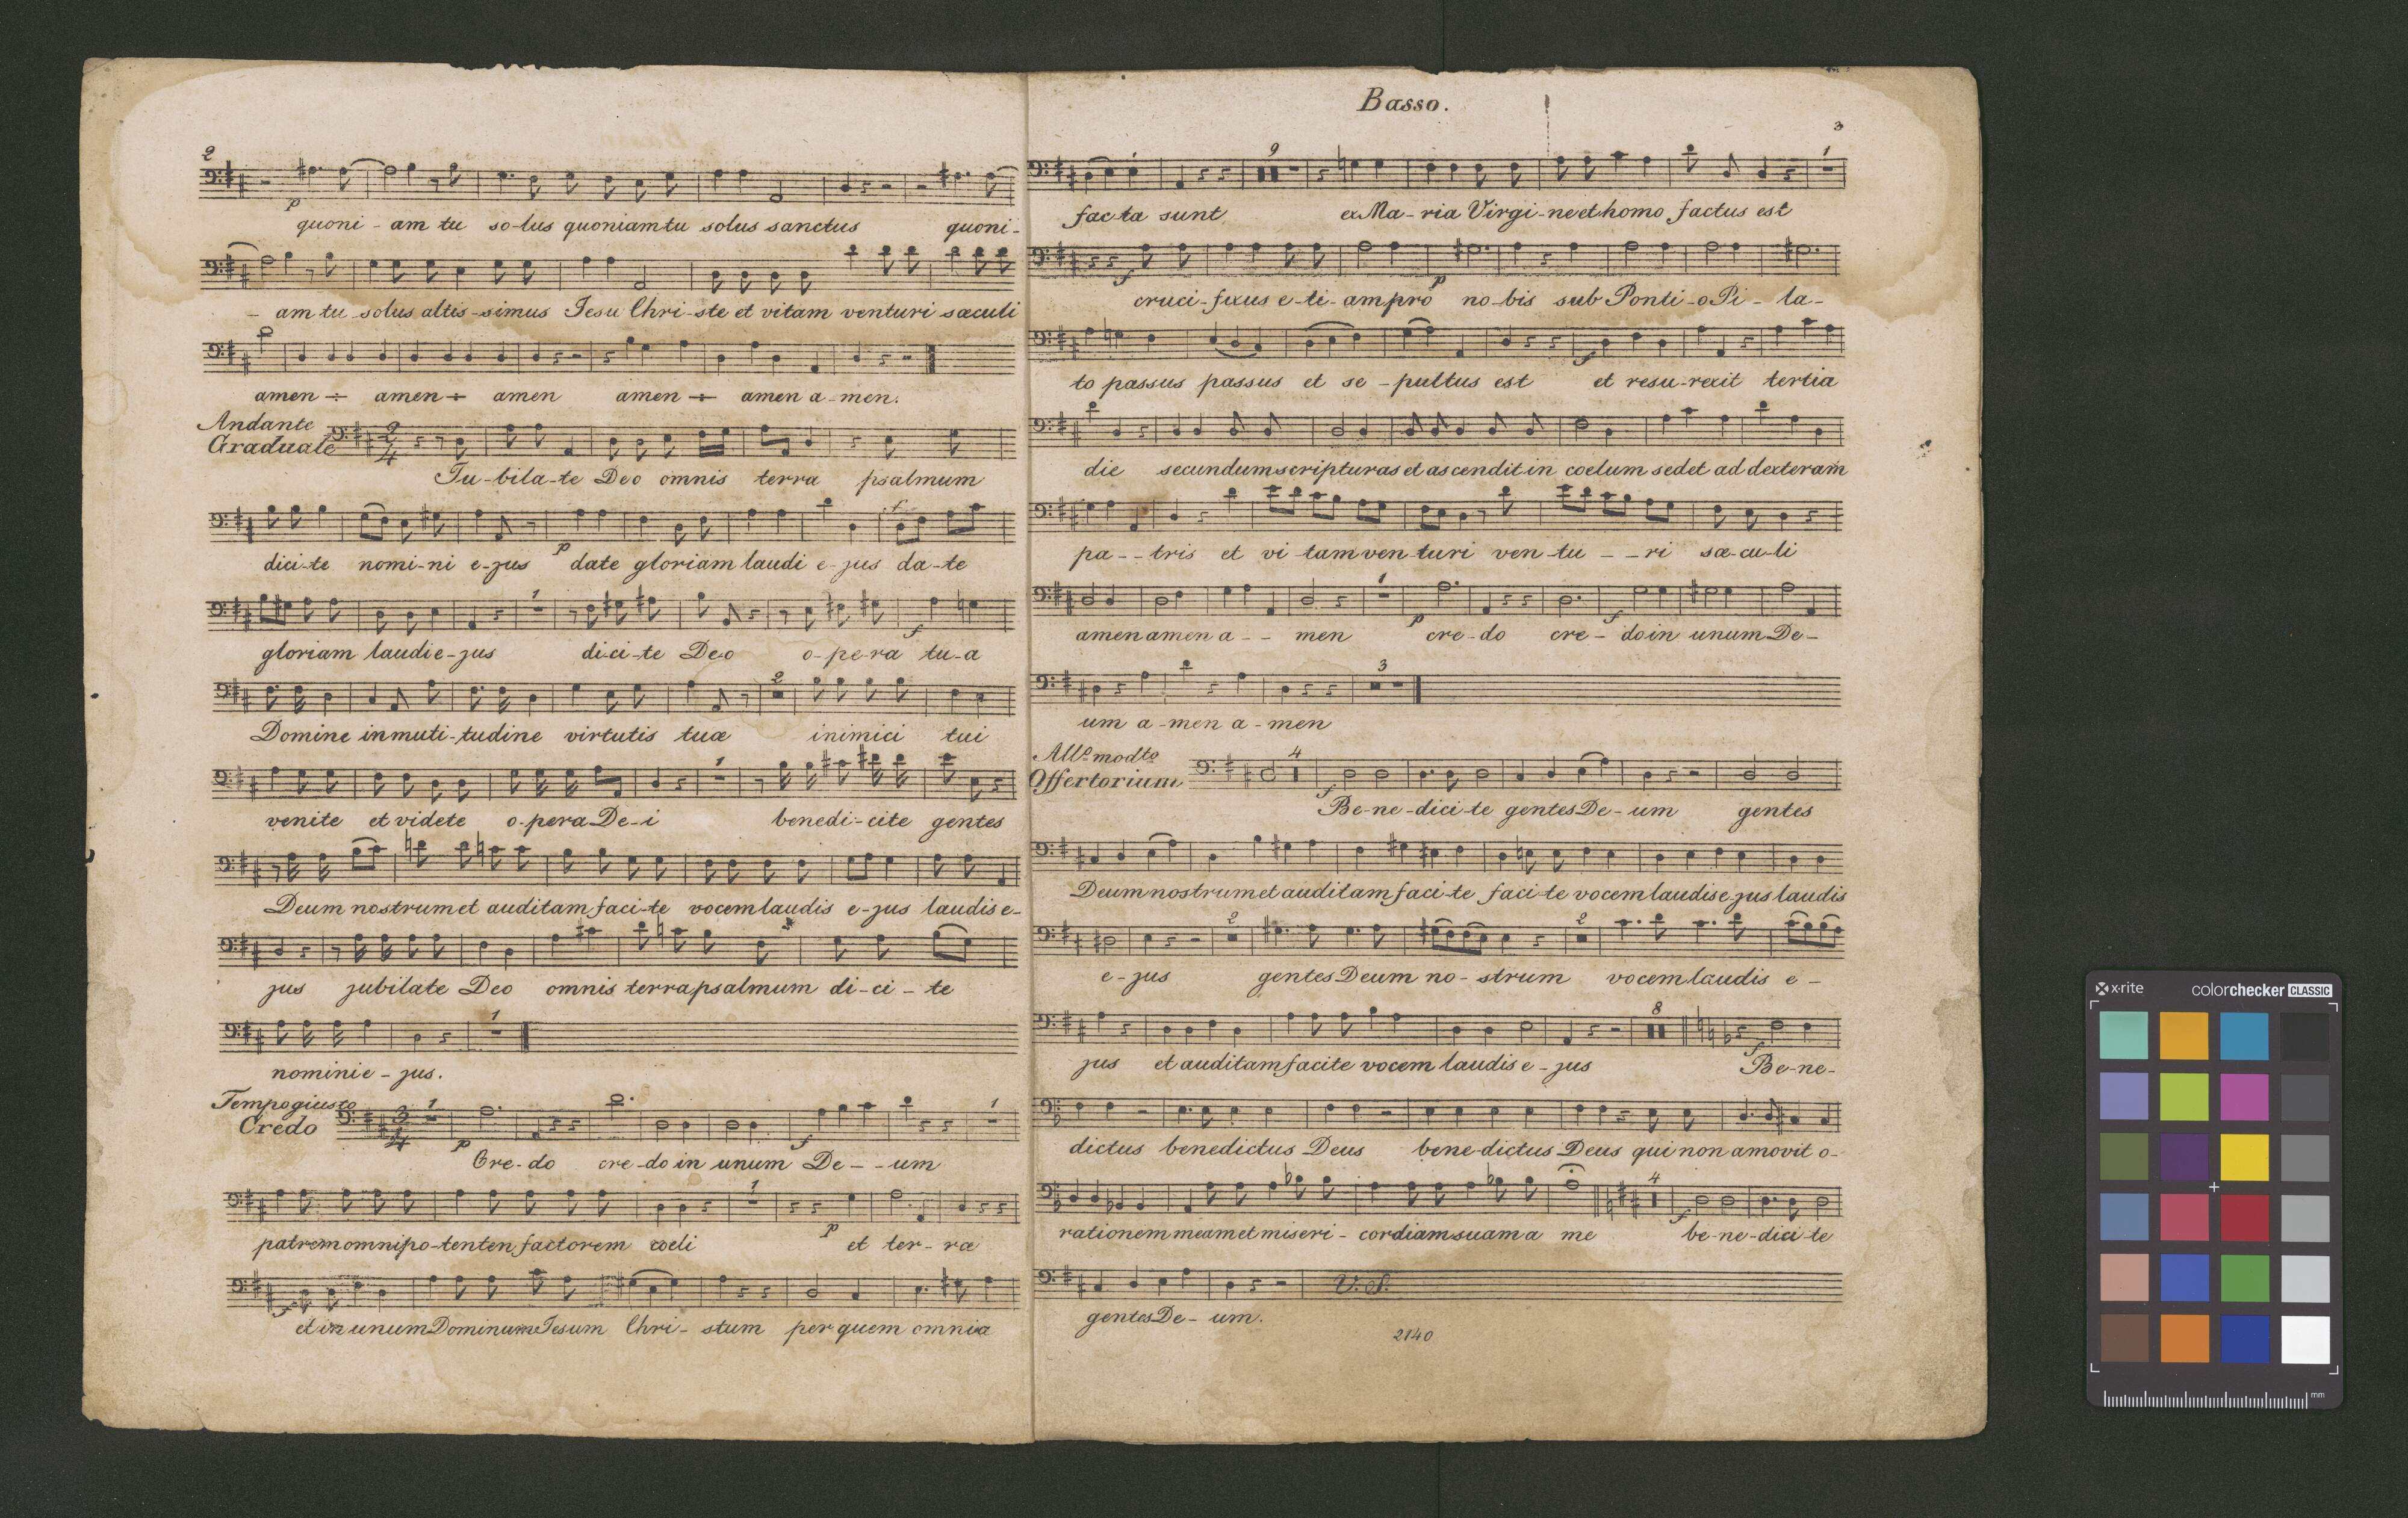 2
p
quoni - am tu so-lus quoniam tu solus sanctus quoni-
- am tu solus altis-simus Jesu Chri-ste et vitam venturi sæculi
amen ÷ amen ÷ amen amen ÷ amen a-men.
Andante
Graduale
2/4
Ju-bila-te Deo omnis terra psalmum
f
dici-te nomi-ni e-jus p date gloriam laudi e-jus da-te
1
f
gloriam laudi e-jus di-ci-te Deo o-pe-ra tu-a
2
Domine in muti-tudine virtutis tuæ inimici tui
1
venite et videte o-pera De-i benedi-cite gentes
Deum nostrum et auditam faci-te vocem laudis e-jus laudis e-
jus jubilate Deo omnis terra psalmum di-ci-te
1
nomini e-jus.
Tempo giusto
Credo
3/4 1 1
p f
Cre-do cre-do in unum De - - um
1
p
patrem omnipo-tenten factorem coeli et ter-ræ
f
et in unum Dominum Jesum Chri-stum per quem omnia
Basso.
3
9 1
facta sunt ex Ma-ria Virgi-ne et homo factus est
f p
cruci-fixus e-ti-am pro no-bis sub Ponti-o Pi-la-
f
to passus passus et se-pultus est et resu-rexit tertia
die secundum scripturas et ascendit in coelum sedet ad dexteram
pa - - tris et vi tam ven-turi ven-tu - - ri sæ-cu-li
1
p f
amen amen a - - men cre-do cre-do in unum De-
3
um a-men a-men
All.o mod.to
Offertorium
4
f
Be-ne-dici-te gentes De-um gentes
Deum nostrum et auditam faci-te faci-te vocem laudis e-jus laudis
2 2
e-jus gentes Deum no-strum vocem laudis e-
8
f
jus et auditam facite vocem laudis e-jus Be-ne-
dictus benedictus Deus bene-dictus Deus qui non amovit o-
4
f
rationem meam et miseri-cordiam suam a me be-ne-dici te
V. S.
gentes De-um.
2140
x-rite colorchecker CLASSIC
mm